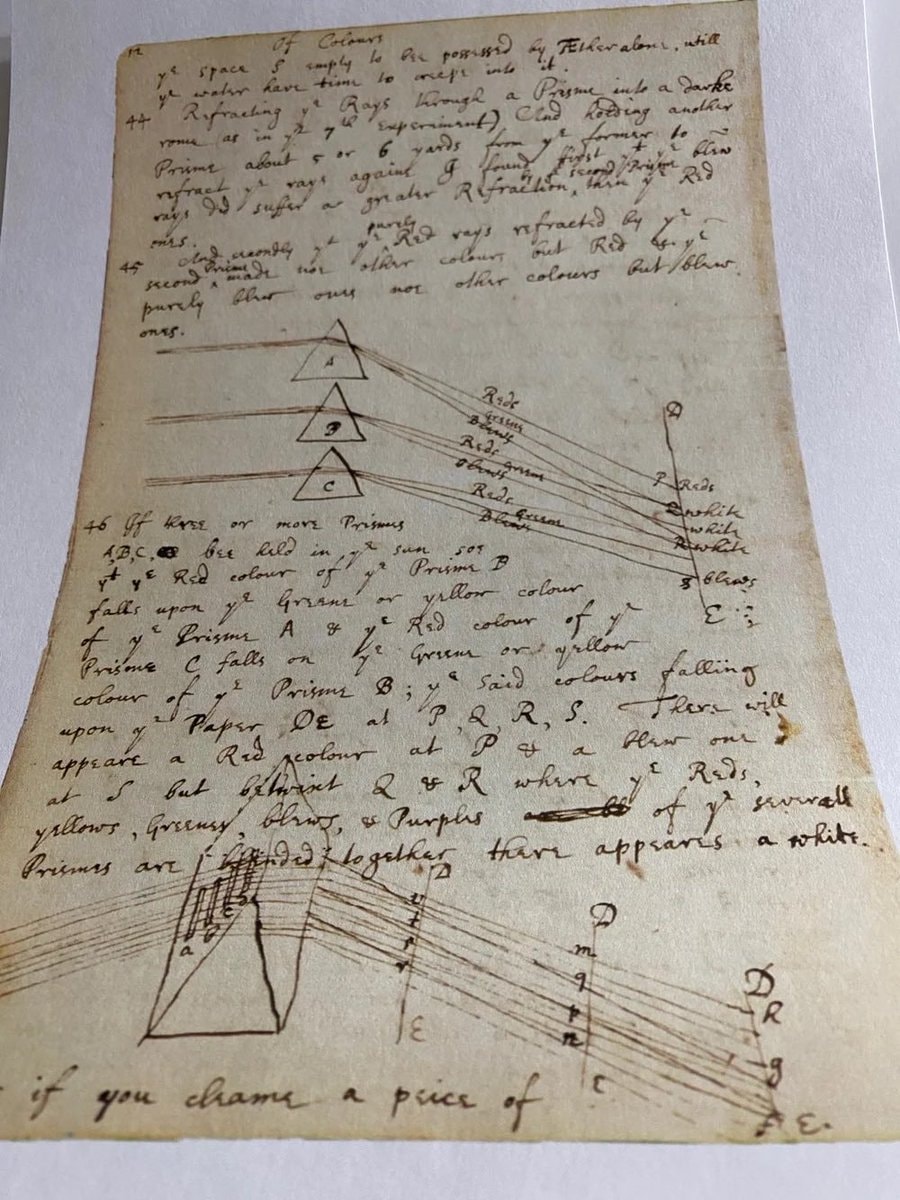 12
Of Colours
yᵉ space S empty to bee possessed by Æther alone, will
yᵉ water have time to creepe into it.
44 Refracting yᵉ Rays through a Prisme into a darke
rome (as in yᵉ 7th Experiment) And holding another
Prisme about 5 or 6 yards from yᵉ former to
refract yᵉ rays againe I found first yᵗ yᵉ blew
rays did suffer a greater Refraction by yᵉ second Prisme then yᵉ Red
ones.
45 And secondly yᵗ yᵉ purely Red rays refracted by yᵉ
second Prisme made noe other colours but Red & yᵉ
purely blew ones noe other colours but blew
ones.
A
B
C
Reds
Greene
Blews
Reds
Greene
blews
Reds
Greene
Blews
D
P Reds
Q white
white
R white
S blews
E
46 If three or more Prismes
A, B, C, bee held in yᵉ sun soe
yᵗ yᵉ Red colour of yᵉ Prisme B
falls upon yᵉ Greene or yellow colour
of yᵉ Prisme A & yᵉ Red colour of yᵉ
Prisme C falls on yᵉ Greene or yellow
colour of yᵉ Prisme B; yᵉ said colours falling
upon yᵉ Paper DE at P, Q, R, S. There will
appeare a Red colour at P & a blew one
at S but betwixt Q & R where yᵉ Reds,
yellows, Greenes, blews, & Purples of yᵉ severall
Prismes are blended together there appeares a white.
a b c
D
v
t
s
r
E
D
m
q
p
n
E
D
R
g
E
if you cleame a peice of